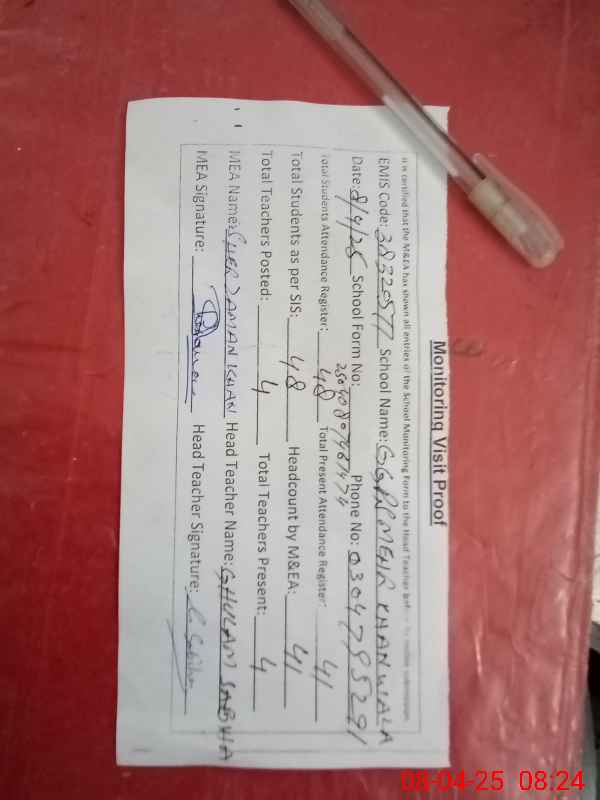 Monitoring Visit Proof
It is certified that the M&EA has shown all entries of the School Monitoring Form to the Head Teacher before online submission.
EMIS Code: 38320577 School Name: GGPS MEHR KHANWALA
Date: 8/4/25 School Form No: Phone No: 03047795291
Total Students Attendance Register: 48 Total Present Attendance Register: 41
Total Students as per SIS: 48 Headcount by M&EA: 41
Total Teachers Posted: 4 Total Teachers Present: 4
MEA Name: SHER ZAMAN KHAN Head Teacher Name: GHULAM SABHA
MEA Signature: Head Teacher Signature:
08-04-25 08:24